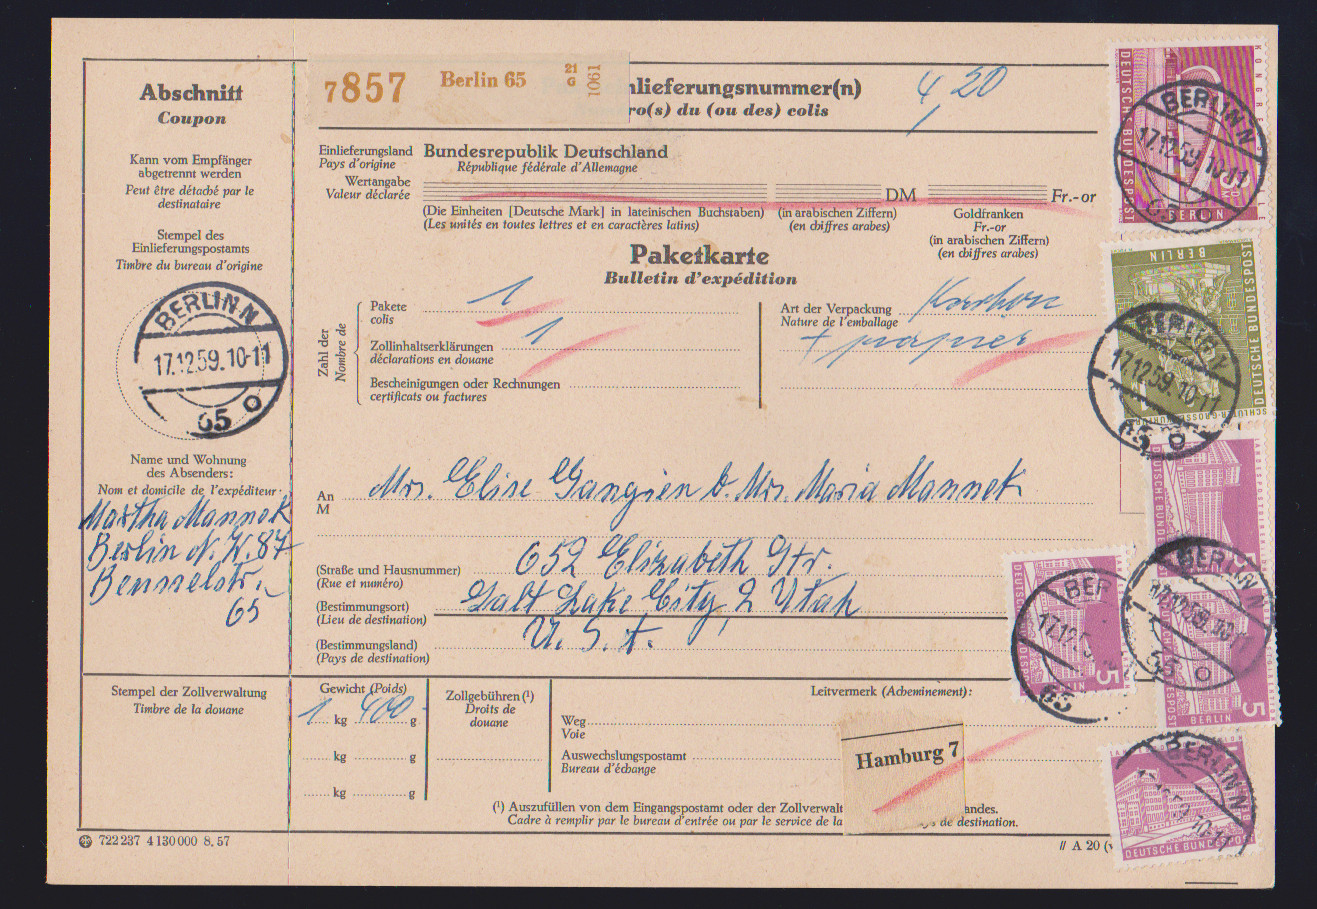 Abschnitt
Coupon
Kann vom Empfänger
abgetrennt werden
Peut être détaché par le
destinataire
Stempel des
Einlieferungspostamts
Timbre du bureau d'origine
BERLIN-N
17.12.59.10-11
65 o
Name und Wohnung
des Absenders:
Nom et domicile de l'expéditeur:
Martha Mannek
Berlin N.W. 87
Beusselstr.
65
Stempel der Zollverwaltung
Timbre de la douane
722 237 4 130 000 8. 57
7857 Berlin 65 21 G 1061
nlieferungsnummer(n)
ro(s) du (ou des) colis
4,20
Einlieferungsland Bundesrepublik Deutschland
Pays d'origine République fédérale d'Allemagne
Wertangabe
Valeur déclarée DM Fr.-or
(Die Einheiten [Deutsche Mark] in lateinischen Buchstaben) (in arabischen Ziffern) Goldfranken
(Les unités en toutes lettres et en caractères latins) (en chiffres arabes) Fr.-or
(in arabischen Ziffern)
(en chiffres arabes)
Paketkarte
Bulletin d'expédition
Zahl der
Nombre de
Pakete 1
colis
Zollinhaltserklärungen 1
déclarations en douane
Bescheinigungen oder Rechnungen
certificats ou factures
Art der Verpackung Karton
Nature de l'emballage
+ papier
An Mrs. Elise Gangien b. Mrs. Maria Mannek
M
(Straße und Hausnummer) 652 Elizabeth Str.
(Rue et numéro)
(Bestimmungsort) Salt Lake City, 2 Utah
(Lieu de destination)
(Bestimmungsland) U. S. A.
(Pays de destination)
Gewicht (Poids)
1 kg 400 g
kg g
kg g
Zollgebühren (¹)
Droits de
douane
Leitvermerk (Acheminement):
Weg
Voie
Auswechslungspostamt
Bureau d'échange
Hamburg 7
(¹) Auszufüllen von dem Eingangspostamt oder der Zollverwalt andes.
Cadre à remplir par le bureau d'entrée ou par le service de la de destination.
// A 20 (
DEUTSCHE BUNDESPOST
BERLIN
BERLIN-N
17.12.59.10-11
65 o
BERLIN
DEUTSCHE BUNDESPOST
BERLIN-N
17.12.59.10-11
65 o
DEUTSCHE BUNDESPOST
5
BERLIN
BER
17.12.5
65
DEUTSCHE BUND
5
BERLIN-N
17.12.59.10-11
65 o
5
BERLIN
BERLIN-N
10-11
DEUTSCHE BUNDESPOST